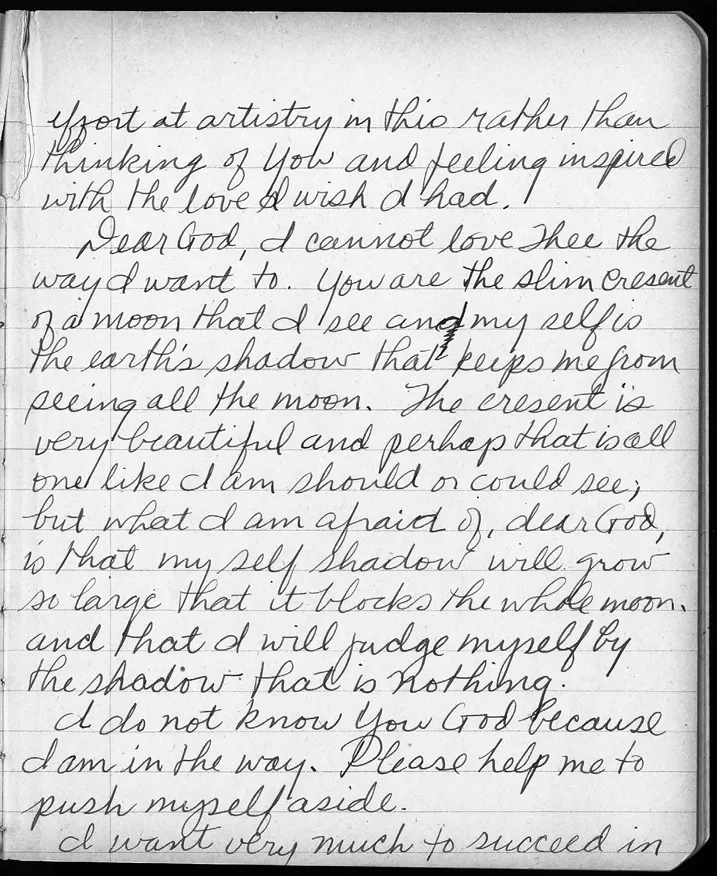 effort at artistry in this rather than
thinking of You and feeling inspired
with the love I wish I had.
Dear God, I cannot love Thee the
way I want to. You are the slim cresent
of a moon that I see and my self is
the earth's shadow that keeps me from
seeing all the moon. The cresent is
very beautiful and perhaps that is all
one like I am should or could see;
but what I am afraid of, dear God,
is that my self shadow will grow
so large that it blocks the whole moon.
and that I will judge myself by
the shadow that is nothing.
I do not know You God because
I am in the way. Please help me to
push myself aside.
I want very much to succeed in